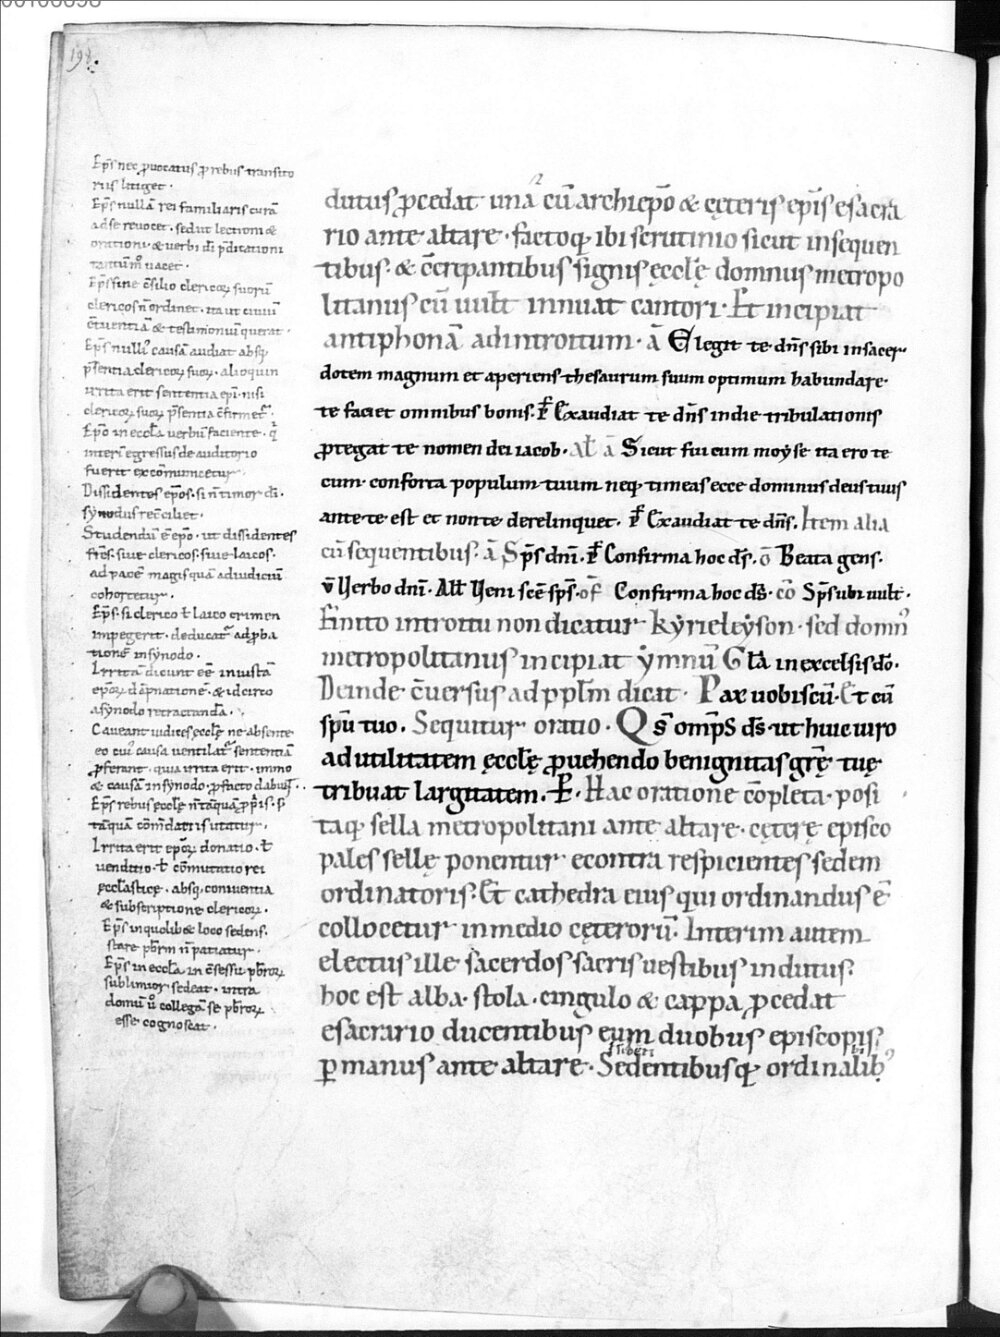 198.
Ep̄s nec ꝓuocatus ꝓ rebus transito
riis litiget.
Ep̄s nullā rei familiaris curā
ad se reuocet. sed ut lectioni &
orationi. & uerbi dī p̄dicationi
tantūm̊ uacet.
Ep̄s sine c̄silio clericoꝝ suorū
clericos n̄ ordinet. ita ut ciuiū
c̄iuentiā & testimoniū querat.
Ep̄s nulli᾽ causā audiat absq;
p̄sentia clericoꝝ suoꝝ. alioquin
irrita erit sententia ep̄i. nisi
clericoꝝ suoꝝ p̄sentia c̄firmet᾽.
Ep̄o in eccl̄a uerbū faciente. q̇
interī egressus de auditorio
fuerit excōmunicetur.
Dissidentes ep̄os. si n̄ timor dī.
synodus rec̄ciliet.
Studendū ē ep̄o. ut dissidentes
fr̄es. siue clericos. siue laicos.
ad pacē magis quā ad iudiciū
cohortetur.
Ep̄s. si clerico ł laico crimen
impegerit. deducat᾽ ad ꝓba
tionē in synodo.
Irritā dicunt eē iniustā
ep̄oꝝ dāpnationē. & idcirco
a synodo retractanda.
Caueant iudices eccłę ne absente
eo cui᾽ causa uentilat᾽ sententiā
ꝓferant. quia irrita erit. immo
& causā in synodo. ꝓ facto dabuī.
Ep̄s rebus eccłę n̄ tāquā ꝓp̄is. s̄
tāquā cōmdatis utatur.
Irrita erit ep̄oꝝ donatio. ł
uenditio. ł cōmutatio rei
eccłasticę. absq; coniuentia
& subscriptione clericoꝝ.
Ep̄s in quolib& loco sedens.
stare pb̄rm n̄ patiatur.
Ep̄s in eccl̄a in c̄sessu pb̄roꝝ
sublimior sedeat. intra
domū ů collegā se pb̄roꝝ
esse cognoscat.
dutus ꝓcedat una cū archiep̄o & cęteris ep̄is e sacra
rio ante altare. factoq; ibi scrutinio sicut in sequen
tibus. & c̄crepantibus signis ęccłę domnus metropo
litanus cū uult innuat cantori. Et incipiat
antiphonā ad introitum. ā Elegit te dn̄s sibi in sacer
dotem magnum et aperiens thesaurum suum optimum habundare
te faciet omnibus bonis. p̄ Exaudiat te dn̄s in die tribulationis
ꝓtegat te nomen dei iacob. Ał ā Sicut fui cum moyse ita ero te
cum. conforta populum tuum neq; timeas ecce dominus deus tuus
ante te est et non te derelinquet. p̄ Exaudiat te dn̄s. Item alia
cū sequentibus. ā Sp̄s dn̄i. p̄ Confirma hoc ds̄. ō Beata gens.
v̄ Uerbo dn̄i. Ałł Ueni sc̄e sp̄s. of̄ Confirma hoc ds̄. cō Sp̄s ubi uult.
Finito introitu non dicatur kyrieleyson. sed domn᾽
metropolitanus incipiat ymnū Gła in excelsis dō.
Deinde c̄uersus ad ppłm dicat. Pax uobiscū. Et cū
sp̄u tuo. Sequitur oratio. Qs̄ omp̄s ds̄. ut huic uiro
ad utilitatem ęccłę ꝓuehendo benignitas gr̄ę tuę
tribuat largitatem. P̄. Hac oratione cōpleta. posi
taq; sella metropolitani ante altare. cęterę episco
pales sellę ponentur econtra respicientes sedem
ordinatoris. Et cathedra eius qui ordinandus ē
collocetur in medio cęterorū. Interim autem
electus ille sacerdos sacris uestibus indutus.
hoc est alba. stola. cingulo & cappa ꝓcedat
e sacrario ducentibus eum duobus episcopis.
ꝑ manus ante altare. Sedentibusq; ordinalib᾽